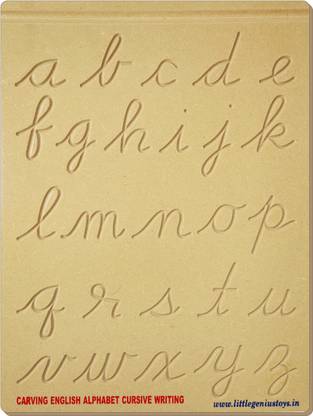 a b c d e
f g h i j k
l m n o p
q r s t u
v w x y z
CARVING ENGLISH ALPHABET CURSIVE WRITING
www.littlegeniustoys.in